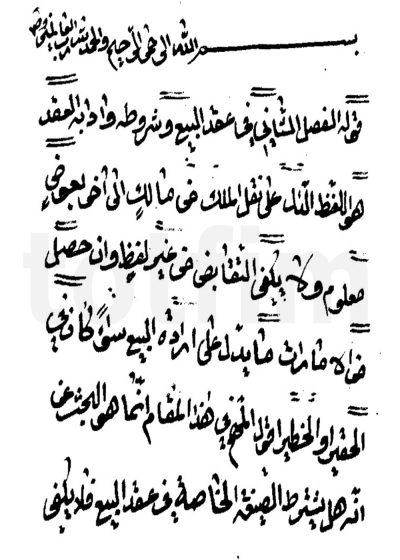 بسم الله الرحمن الرحيم والحمد لله رب العالمين
قوله الفصل الثاني في عقد البيع وشروطه وآدابه العقد
هو اللفظ الدال على نقل الملك من مالك الى آخر بعوض
معلوم ولا يكفي التقابض من غير لفظ وان حصل
من الامارات ما يدل على ارادة البيع سواء كان في
الحقير او الخطير اقول المهم في هذا المقام انما هو البحث عن
انه هل يشترط الصيغة الخاصة في عقد البيع فلا يكفي
totfim